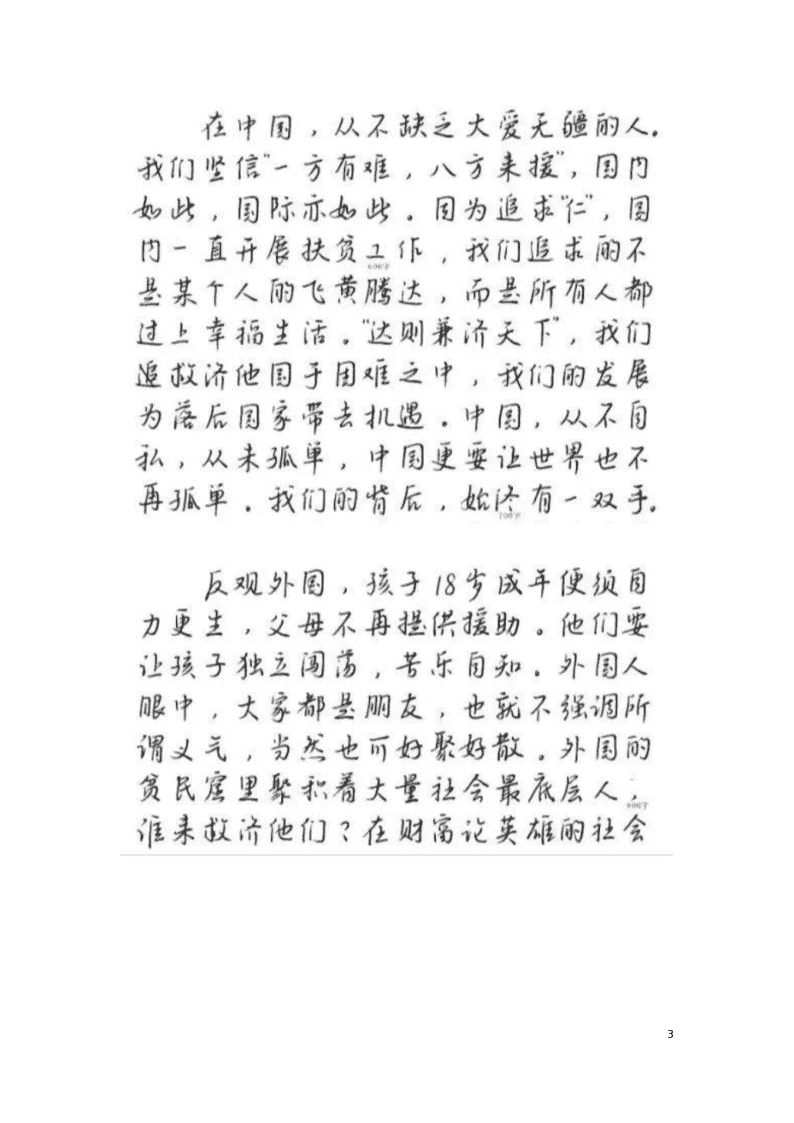 在中国，从不缺乏大爱无疆的人。
我们坚信"一方有难，八方来援"，国内
如此，国际亦如此。因为追求"仁"，国
内一直开展扶贫工作，我们追求的不
600字
是某个人的飞黄腾达，而是所有人都
过上幸福生活。"达则兼济天下"，我们
追救济他国于困难之中，我们的发展
为落后国家带去机遇。中国，从不自
私，从未孤单，中国更要让世界也不
再孤单。我们的背后，始终有一双手。
700字
反观外国，孩子18岁成年便须自
力更生，父母不再提供援助。他们要
让孩子独立闯荡，苦乐自知。外国人
眼中，大家都是朋友，也就不强调所
谓义气，当然也可好聚好散。外国的
贫民窟里聚积着大量社会最底层人，
800字
谁来救济他们？在财富论英雄的社会
3